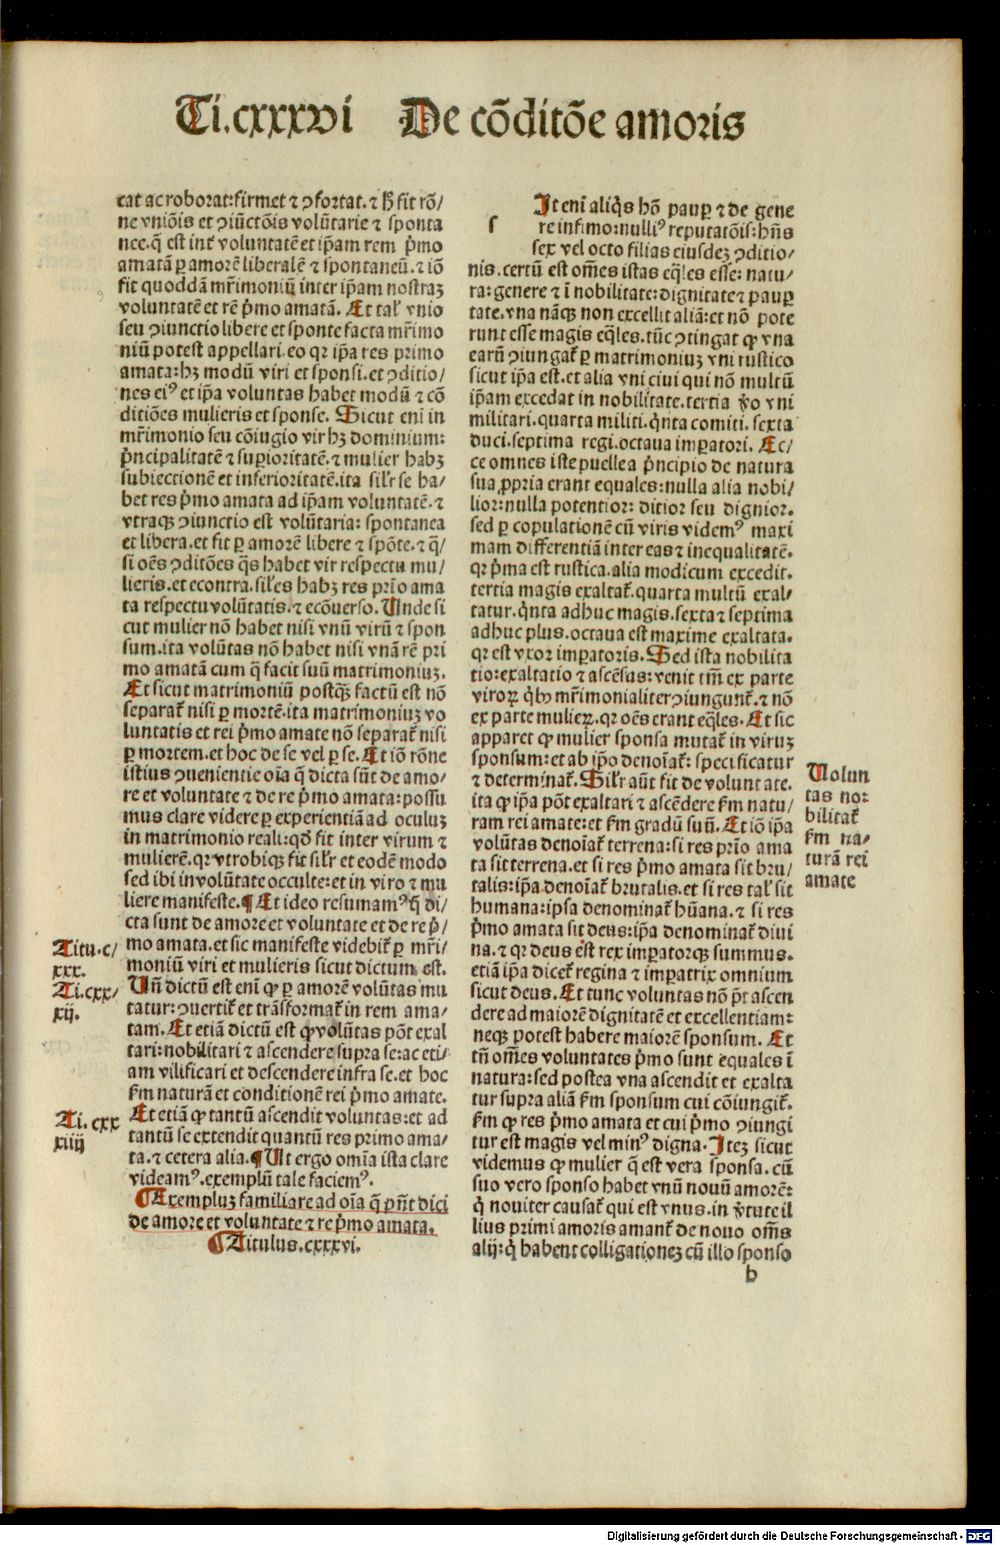 Ti.cxxxvi De cōditōe amoris
cat ac roborat:firmet ⁊ ꝯfortat.⁊ sꝫ fit rō/
ne vniōis et ꝯiūctōis volūtarie ⁊ sponta
nee.q̄ est int̄ volūtatē et ip̄am rem p̄mo
amatā ꝑ amorē liberalē ⁊ spontaneū.⁊ iō
fit quoddā mr̄imoniū inter ip̄am nostraꝫ
voluntatē et rē p̄mo amatā. Et tal' vnio
seu ꝯiunctio libere et sponte facta mr̄imo
niū potest appellari.eo qꝛ ip̄a res primo
amata:hꝫ modū viri et sponsi.et ꝯditio/
nes ei⁹ et ip̄a voluntas habet modū ⁊ cō
ditiōes mulieris et sponse. Sicut eni in
mr̄imonio seu cōiugio vir hꝫ dominium:
p̄ncipalitatē ⁊ suꝑioritatē.⁊ mulier habꝫ
subiectionē et inferioritatē.ita sil'r se ha/
bet res p̄mo amata ad ip̄am voluntatē.⁊
vtraqꝫ ꝯiunctio est volūtaria: spontanea
et libera.et fit ꝑ amorē libere ⁊ spōte.⁊ q̄/
si oēs ꝯditōes q̄s habet vir respectu mu/
lieris.et econtra.sil'es habꝫ res pr̄io ama
ta respectu volūtatis.⁊ ecōuerso. Unde si
cut mulier nō habet nisi vnū virū ⁊ spon
sum.ita volūtas nō habet nisi vnā rē pri
mo amatā cum q̄ facit suū matrimoniuꝫ.
Et sicut matrimoniū postqꝫ factū est nō
separat̄ nisi ꝑ mortē.ita matrimoniuꝫ vo
luntatis et rei p̄mo amate nō separat̄ nisi
ꝑ mortem.et hoc de se vel ꝑ se. Et iō rōne
istius ꝯuenientie oīa q̄ dicta sūt de amo/
re et voluntate ⁊ de re p̄mo amata:possu
mus clare videre ꝑ experientiā ad oculuꝫ
in matrimonio reali:qd̄ fit inter virum ⁊
mulierē.qꝛ vtrobiqꝫ fit sil'r et eodē modo
sed ibi in volūtate occulte:et in viro ⁊ mu
liere manifeste.¶ Et ideo resumam⁹ q̄ di/
cta sunt de amore et voluntate et de re p̄/
mo amata.et sic manifeste videbit̄ ꝑ mr̄i/
moniū viri et mulieris sicut dictum est.
Un̄ dictū est eni ꝙ ꝑ amorē volūtas mu
tatur:ꝯuertit̄ et trāsformat̄ in rem ama/
tam. Et etiā dictū est ꝙ volūtas pōt exal
tari:nobilitari ⁊ ascendere supra se:ac eti/
am vilificari et descendere infra se.et hoc
fm naturā et conditionē rei p̄mo amate.
Et etiā ꝙ tantū ascendit voluntas:et ad
tantū se extendit quantū res primo ama/
ta.⁊ cetera alia.¶ Ut ergo omīa ista clare
videam⁹.exemplū tale faciem⁹.
¶ Exempluꝫ familiare ad oīa q̄ p̄nt dici
de amore et voluntate ⁊ re p̄mo amata.
¶ Titulus.cxxxvi.
Titu.c/
xxx.
Ti.cxx/
xij.
Ti.cxx
xiiij
s
It eni aliq̄s hō pauꝑ ⁊ de gene
re infimo:nulli⁹ reputatōis:hn̄s
sex vel octo filias eiusdeꝫ ꝯditio/
nis.certū est om̄es istas eq̄les esse: natu/
ra:genere ⁊ ī nobilitate:dignitate ⁊ pauꝑ
tate.vna nāqꝫ non excellit aliā:et nō pote
runt esse magis eq̄les.tūc ꝯtingat ꝙ vna
earū ꝯiungat̄ ꝑ matrimoniuꝫ vni rustico
sicut ip̄a est.et alia vni ciui qui nō multū
ip̄am excedat in nobilitate.tertia v̄o vni
militari.quarta militi.q̄nta comiti. sexta
duci.septima regi.octaua imꝑatori. Ec/
ce omnes iste puelle a p̄ncipio de natura
sua ꝓpria erant equales:nulla alia nobi/
lior:nulla potentior: ditior seu dignior.
sed ꝑ copulationē cū viris videm⁹ maxi
mam differentiā inter eas ⁊ inequalitatē.
qꝛ p̄ma est rustica.alia modicum excedit.
tertia magis exaltat̄.quarta multū exal/
tatur.q̄nta adhuc magis.sexta ⁊ septima
adhuc plus.octaua est maxime exaltata.
qꝛ est vxor imꝑatoris. Sed ista nobilita
tio:exaltatio ⁊ ascēsus:venit tm̄ ex parte
viroꝝ qb⁹ mr̄imonialiter ꝯiungunt̄.⁊ nō
ex parte mulieꝝ.qꝛ oēs erant eq̄les. Et sic
apparet ꝙ mulier sponsa mutat̄ in viruꝫ
sponsum:et ab ip̄o denoīat̄: specificatur
⁊ determinat̄. Sil'r aūt fit de voluntate.
ita ꝙ ip̄a pōt exaltari ⁊ ascēdere fm natu/
ram rei amate:et fm gradū suū. Et iō ip̄a
volūtas denoīat̄ terrena:si res pr̄io ama
ta sit terrena.et si res p̄mo amata sit bru/
talis:ip̄a denoīat̄ brutalis.et si res tal' sit
humana:ipsa denominat̄ hūana.⁊ si res
p̄mo amata sit deus:ip̄a denominat̄ diui
na.⁊ qꝛ deus est rex imꝑatorqꝫ summus.
etiā ip̄a dicet̄ regina ⁊ imꝑatrix omnium
sicut deus. Et tunc voluntas nō p̄t ascen
dere ad maiorē dignitatē et excellentiam:
neqꝫ potest habere maiorē sponsum. Et
tn̄ om̄es voluntates p̄mo sunt equales ī
natura:sed postea vna ascendit et exalta
tur supra aliā fm sponsum cui cōiungit̄.
fm ꝙ res p̄mo amata et cui p̄mo ꝯiungi
tur est magis vel min⁹ digna. Iteꝫ sicut
videmus ꝙ mulier q̄ est vera sponsa. cū
suo vero sponso habet vnū nouū amorē:
q̄ nouiter causat̄ qui est vnus.in v̄tute il
lius primi amoris amant̄ de nouo om̄s
alij:q̄ habent colligationeꝫ cū illo sponso
b
Uolun
tas no:
bilitat̄
fm na/
turā rei
amate
Digitalisierung gefördert durch die Deutsche Forschungsgemeinschaft - DFG